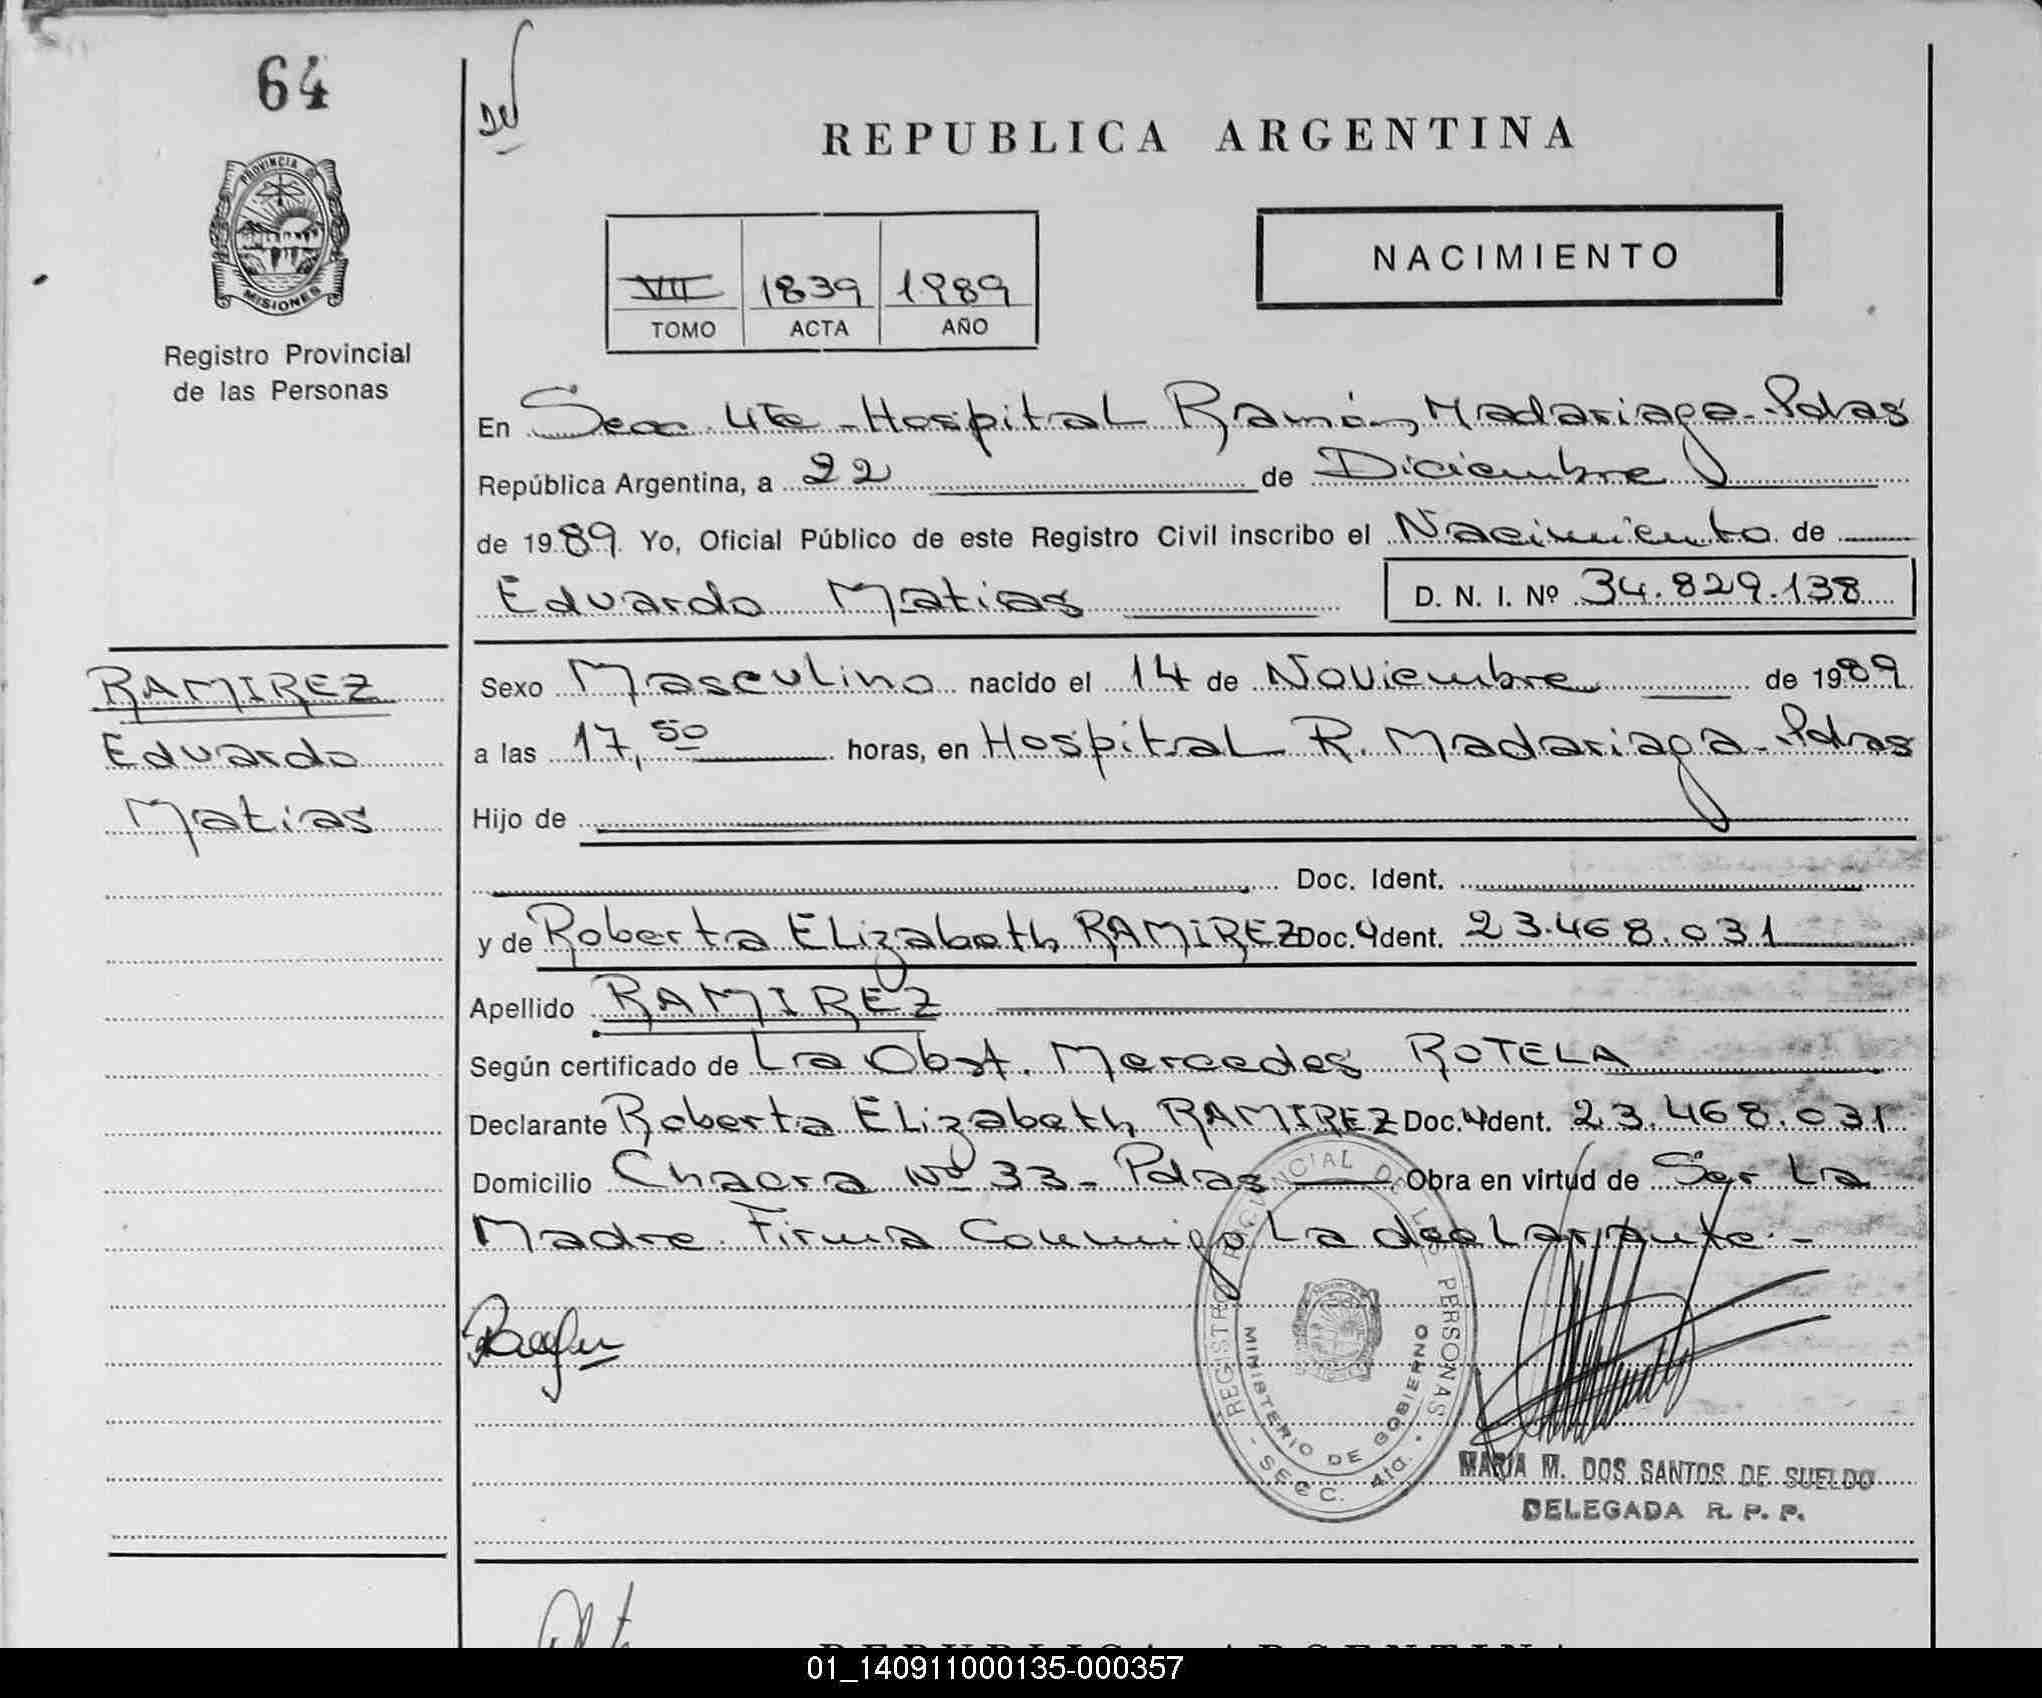 64
PROVINCIA DE
MISIONES
Registro Provincial
de las Personas
RAMIREZ
Eduardo
Matias
REPUBLICA ARGENTINA
NACIMIENTO
VII 1839 1989
TOMO ACTA AÑO
En Secc. 4ta - Hospital Ramón Madariaga - Pdas
República Argentina, a 22 de Diciembre
de 1989 Yo, Oficial Público de este Registro Civil inscribo el Nacimiento de
Eduardo Matias D. N. I. Nº 34.829.138
Sexo Masculino nacido el 14 de Noviembre de 1989
a las 17,50 horas, en Hospital R. Madariaga - Pdas
Hijo de
Doc. Ident.
y de Roberta ELizabeth RAMIREZ Doc. Ident. 23.468.031
Apellido RAMIREZ
Según certificado de La Obst. Mercedes ROTELA
Declarante Roberta ELizabeth RAMIREZ Doc. Ident. 23.468.031
Domicilio Chacra Nº 33 - Pdas Obra en virtud de Ser La
Madre. Firma Conmigo La decLarante. -
REGISTRO PROVINCIAL DE LAS PERSONAS
MINISTERIO DE GOBIERNO
- SECC. 4ta. -
MARIA M. DOS SANTOS DE SUELDO
DELEGADA R. P. P.
REPUBLICA ARGENTINA
01_140911000135-000357